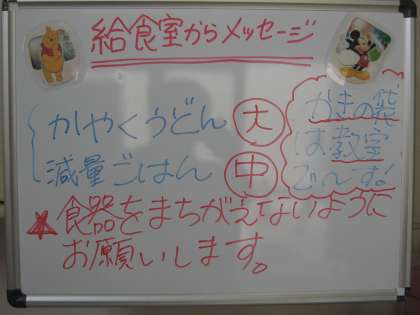 給食室からメッセージ
かやくうどん 大
減量ごはん 中
かきの袋
は教室
で
★食器をまちがえないように
お願いします。